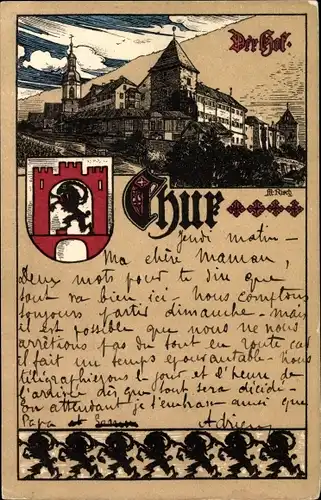 Der Hof.
Chur
jeudi matin —
Ma chère Maman,
deux mots pour te dire que
tout va bien ici — Nous comptons
toujours partir dimanche — mais
il est possible que nous ne nous
arrêtions pas du tout en route car
il fait un temps épouvantable — Nous
télégraphierons le jour et l'heure de
l'arrivée dès que tout sera décidé —
En attendant je t'embrasse ainsi que
Papa et
Adrien